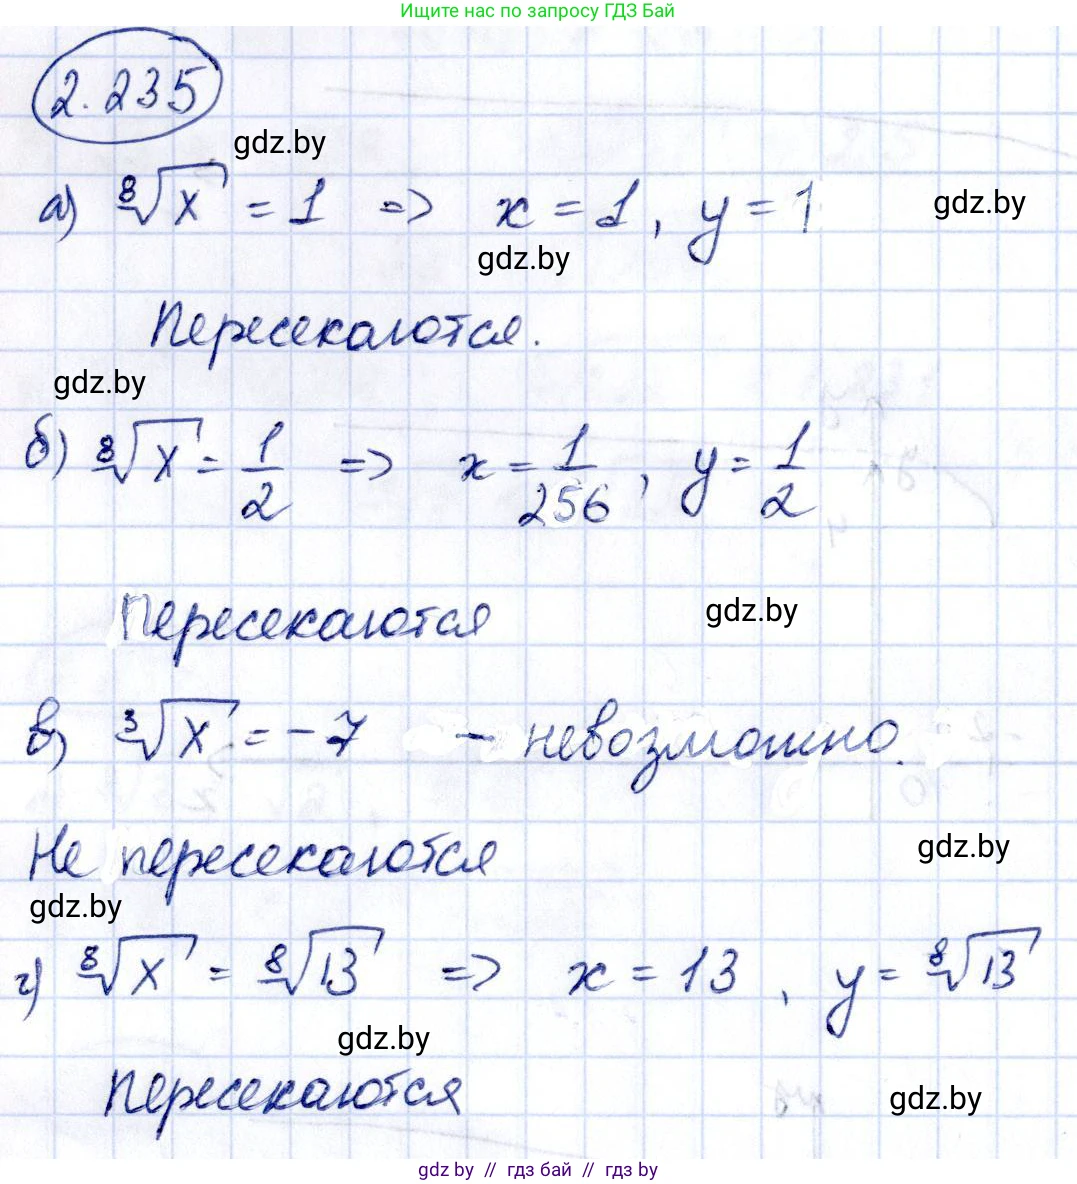 Ищите нас по запросу ГДЗ Бай
2.235
gdz.by
а) ⁸√x = 1 => x = 1, y = 1
gdz.by
gdz.by
Пересекаются.
gdz.by
б) ⁸√x = 1/2 => x = 1/256, y = 1/2
Пересекаются
gdz.by
в) ³√x = -7 - невозможно.
Не пересекаются
gdz.by
gdz.by
г) ⁸√x = ⁸√13 => x = 13, y = ⁸√13
gdz.by
Пересекаются
gdz.by
gdz by // гдз бай // гдз by